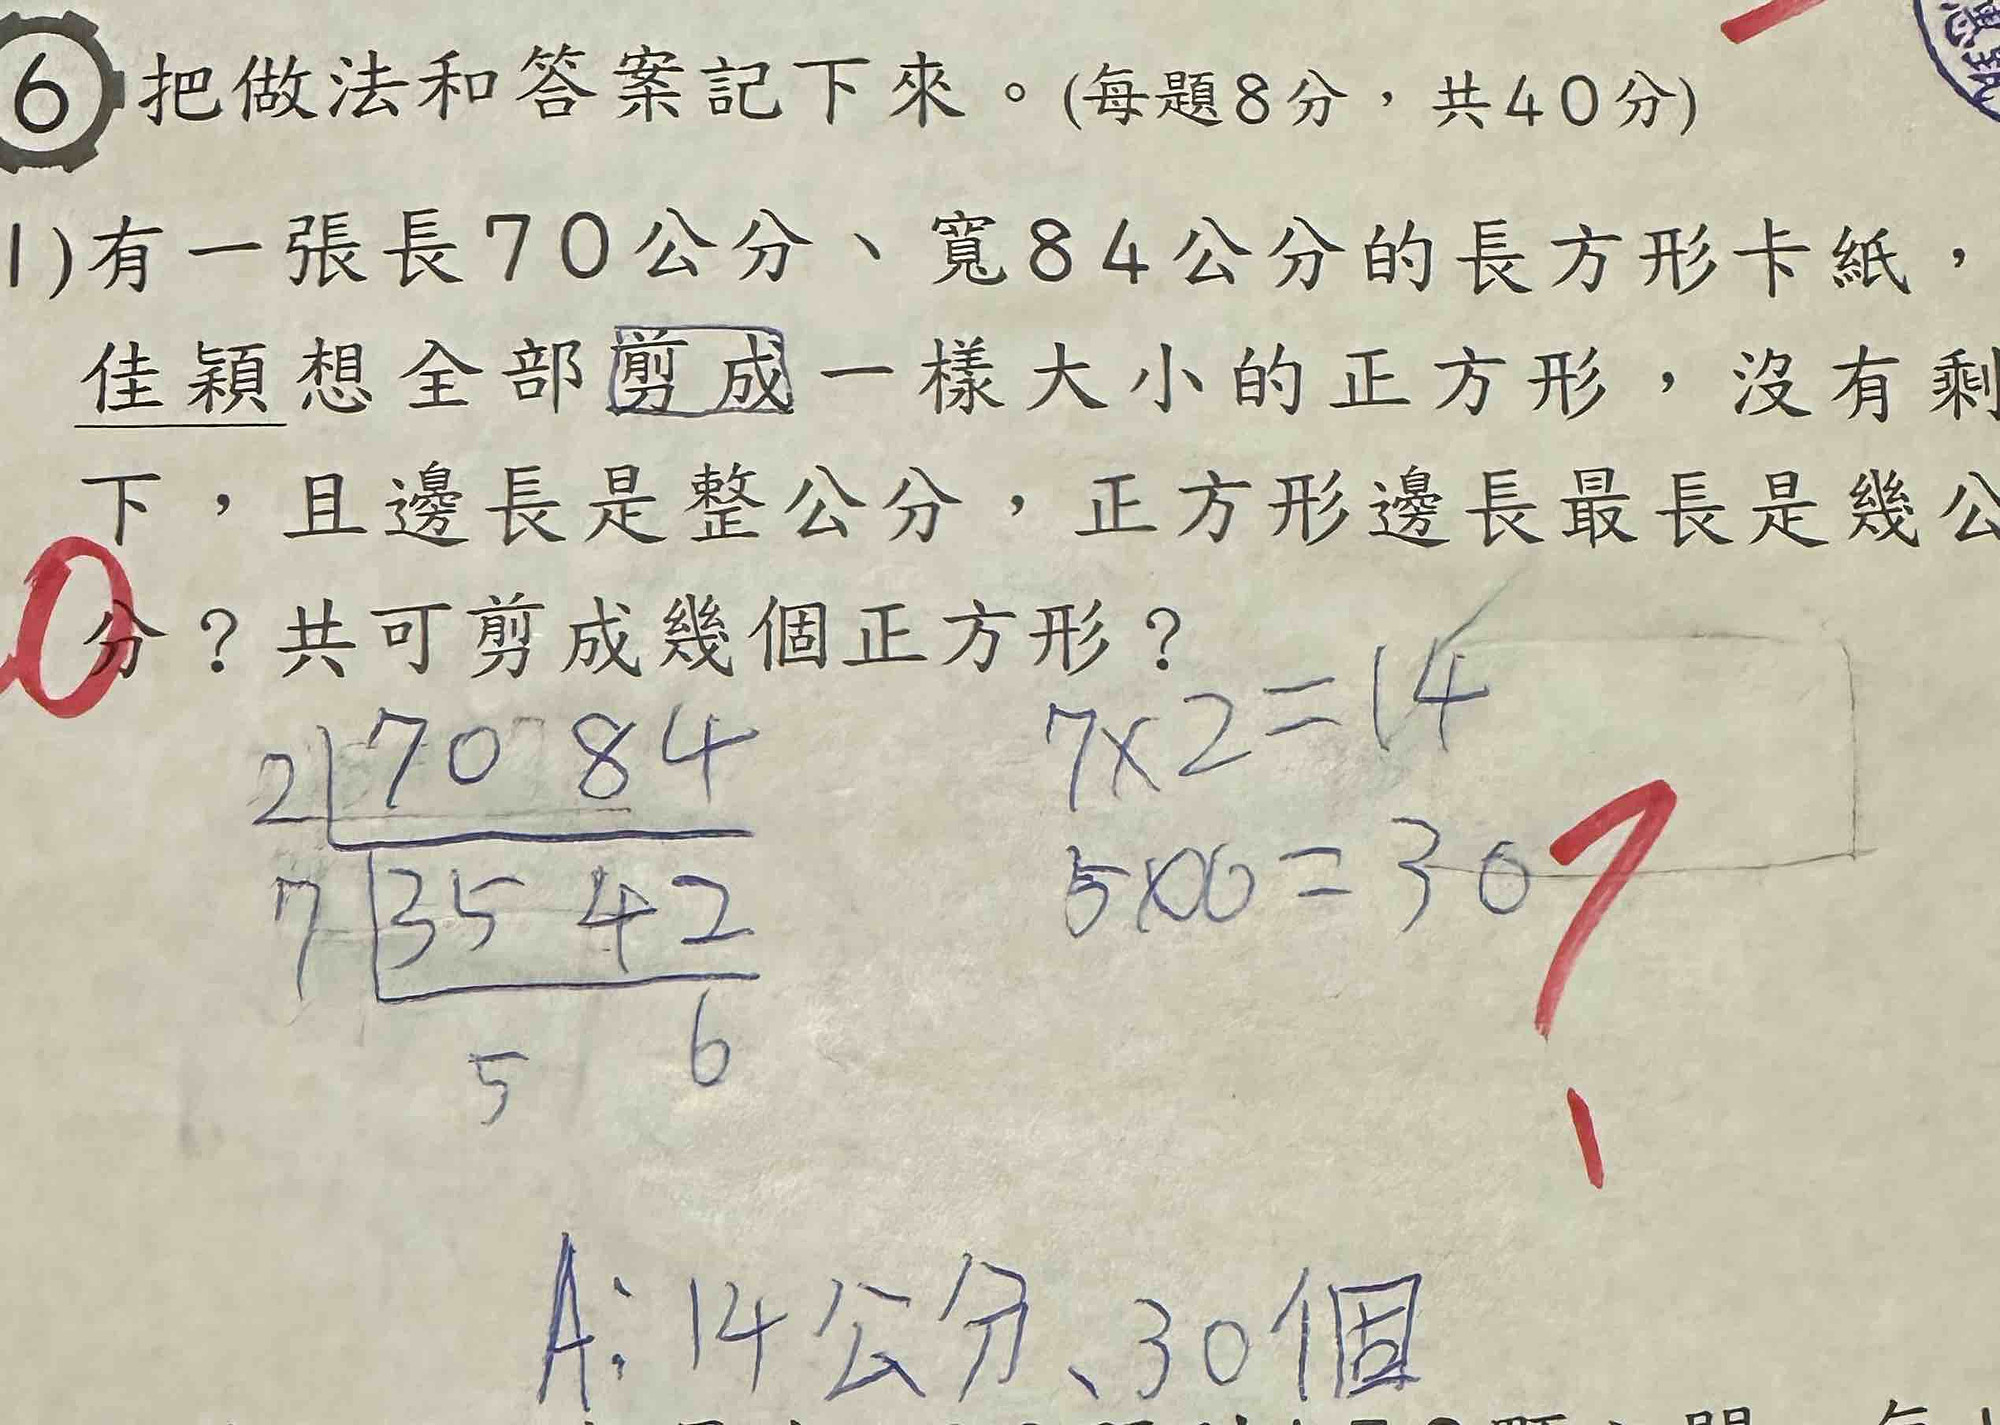 6 把做法和答案記下來。(每題8分，共40分)
1)有一張長70公分、寬84公分的長方形卡紙，
佳穎想全部剪成一樣大小的正方形，沒有剩
下，且邊長是整公分，正方形邊長最長是幾公
分？共可剪成幾個正方形？
2 70 84
7 35 42
5 6
7x2=14
5x6=30
?
A：14公分、30個